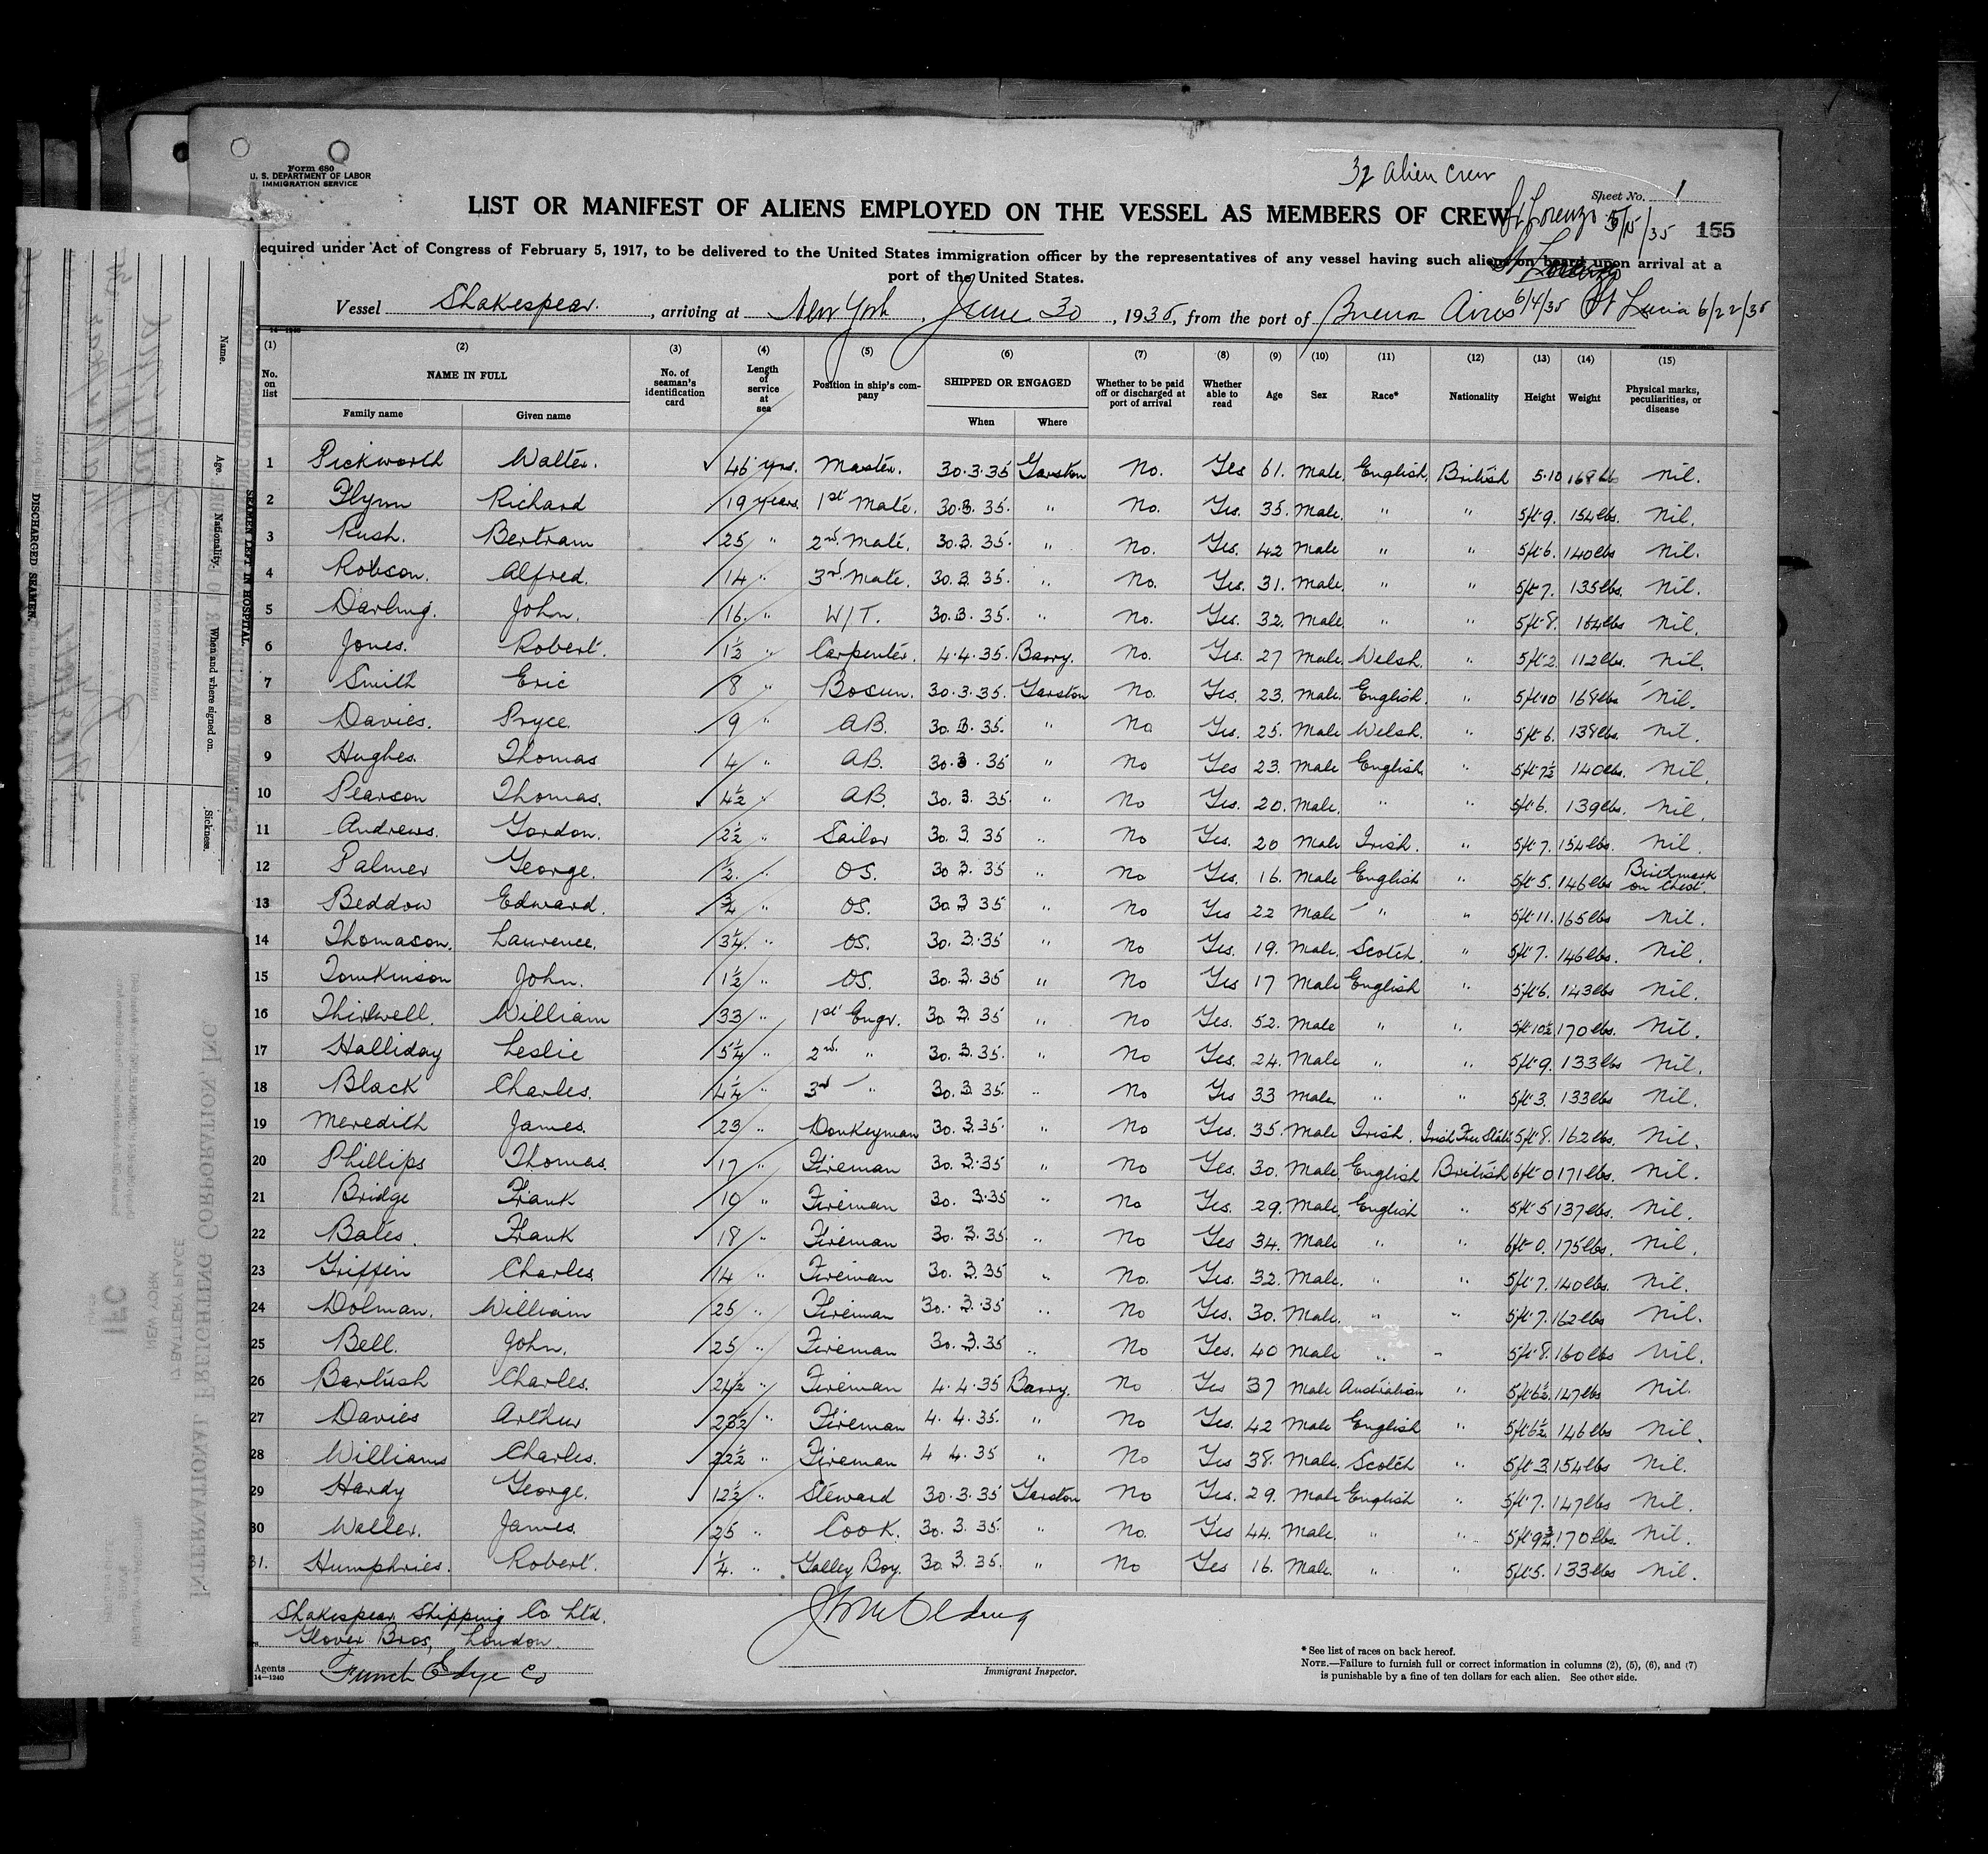 Form 680
U. S. DEPARTMENT OF LABOR
IMMIGRATION SERVICE
32 alien crew
Sheet No. 1
LIST OR MANIFEST OF ALIENS EMPLOYED ON THE VESSEL AS MEMBERS OF CREW
St Lorenzo 5/15/35
155
equired under Act of Congress of February 5, 1917, to be delivered to the United States immigration officer by the representatives of any vessel having such aliens on board upon arrival at a
port of the United States.
Vessel Shakespear, arriving at New York, June 30, 1935, from the port of Buenos Aires 6/4/35 St Lucia 6/22/35
14—1240
(1) (2) (3) (4) (5) (6) (7) (8) (9) (10) (11) (12) (13) (14) (15)
No. on list NAME IN FULL Family name Given name No. of seaman's identification card Length of service at sea Position in ship's company SHIPPED OR ENGAGED When Where Whether to be paid off or discharged at port of arrival Whether able to read Age Sex Race* Nationality Height Weight Physical marks, peculiarities, or disease
1 Pickworth Walter. 46 yrs. Master. 30.3.35 Garston No. Yes 61. Male. English. British 5.10 168 lbs nil.
2 Flynn Richard 19 years. 1st Mate. 30.3.35. " No. Yes. 35. Male. " " 5ft 9. 154lbs. Nil.
3 Rush. Bertram 25 " 2nd Mate. 30.3.35. " No. Yes. 42 Male " " 5ft 6. 140lbs Nil.
4 Robson. Alfred. 14 " 3rd Mate. 30.3.35. " No. Yes. 31. Male. " " 5ft 7. 135lbs. Nil.
5 Darling. John. 16. " W/T. 30.3.35. " No. Yes. 32. Male " " 5ft 8. 164lbs Nil.
6 Jones. Robert. 1½ " Carpenter. 4.4.35. Barry. No. Yes. 27 Male. Welsh. " 5ft 2. 112lbs. Nil.
7 Smith Eric 8 " Bosun. 30.3.35. Garston No. Yes. 23. Male. English. " 5ft 10 168lbs Nil.
8 Davies. Pryce 9 " AB. 30.3.35. " No Yes. 25. Male Welsh. " 5ft 6. 138lbs. Nil.
9 Hughes. Thomas 4 " AB. 30.3.35 " No Yes 23. Male English. " 5ft 7½ 140lbs. Nil.
10 Pearson Thomas. 4½ " AB. 30.3.35. " No Yes. 20. Male. " " 5ft 6. 139lbs. Nil.
11 Andrews. Gordon. 2½ " Sailor 30.3.35 " No Yes. 20 Male Irish. " 5ft 7. 154lbs. Nil.
12 Palmer George. ½. " OS. 30.3.35 " No Yes. 16. Male English " 5ft 5. 146lbs Birthmark on Chest.
13 Beddow Edward. ¾ " OS. 30.3.35 " No Yes 22 Male " " 5ft 11. 165lbs Nil.
14 Thomason. Laurence. 3¼. " OS. 30.3.35 " No Yes. 19. Male. Scotch. " 5ft 7. 146lbs. Nil.
15 Tomkinson John. 1½ " OS. 30.3.35 " No Yes 17 Male English " 5ft 6. 143lbs Nil.
16 Thirlwell. William 33 " 1st Engr. 30.3.35 " No Yes. 52. Male " " 5ft 10½ 170lbs. Nil.
17 Halliday Leslie 5¼ " 2nd " 30.3.35. " No Yes. 24. Male " " 5ft 9. 133lbs Nil.
18 Black Charles. 4¼ " 3rd " 30.3.35 " No Yes 33 Male. " " 5ft 3. 133lbs Nil.
19 Meredith James. 23 " Donkeyman 30.3.35. " No Yes. 35. Male Irish. Irish Free State 5ft 8. 162lbs. Nil.
20 Phillips Thomas. 17 " Fireman 30.3.35 " No Yes. 30. Male. English British 6ft 0 171lbs. Nil.
21 Bridge Frank 10 " Fireman 30.3.35 " No Yes. 29. Male. English " 5ft 5 137lbs. Nil.
22 Bates. Frank 18 " Fireman 30.3.35. " No Yes 34. Male " " 6ft 0. 175lbs. Nil.
23 Griffin Charles. 14 " Fireman 30.3.35 " No. Yes. 32. Male. " " 5ft 7. 140lbs. Nil.
24 Dolman. William 25 " Fireman 30.3.35 " No Yes. 30. Male. " " 5ft 7. 162lbs Nil.
25 Bell. John. 25 " Fireman 30.3.35 " No Yes. 40 Male " " 5ft 8. 160lbs Nil.
26 Charles. 24½ " Fireman 4.4.35 Barry. No Yes 37 Male Australian " 5ft 6½ 147lbs Nil.
27 Davies Arthur 23½ " Fireman 4.4.35. " No Yes. 42 Male English " 5ft 6½ 146lbs Nil.
28 Williams Charles. 22½ " Fireman 4 4.35 " No Yes 38. Male. Scotch " 5ft 3 154lbs Nil.
29 Hardy George. 12½ " Steward 30.3.35 Garston No Yes. 29. Male English " 5ft 7. 147lbs Nil.
30 Waller. James. 25 " Cook. 30.3.35. " No. Yes 44. Male. " " 5ft 9¾. 170lbs. Nil.
31. Humphries. Robert. ¼. " Galley Boy. 30.3.35. " No Yes 16. Male. " " 5ft 5. 133lbs Nil.
Shakespear Shipping Co Ltd.
Glover Bros, London.
Agents Funch Edye Co
14—1240
Immigrant Inspector.
* See list of races on back hereof.
NOTE.—Failure to furnish full or correct information in columns (2), (5), (6), and (7)
is punishable by a fine of ten dollars for each alien. See other side.
DISCHARGED SEAMEN.
SEAMEN LEFT IN HOSPITAL.
Name. Age. Nationality. When and where signed on. Sickness.
INTERNATIONAL FREIGHTING CORPORATION, INC.
17 BATTERY PLACE
NEW YORK
IFC